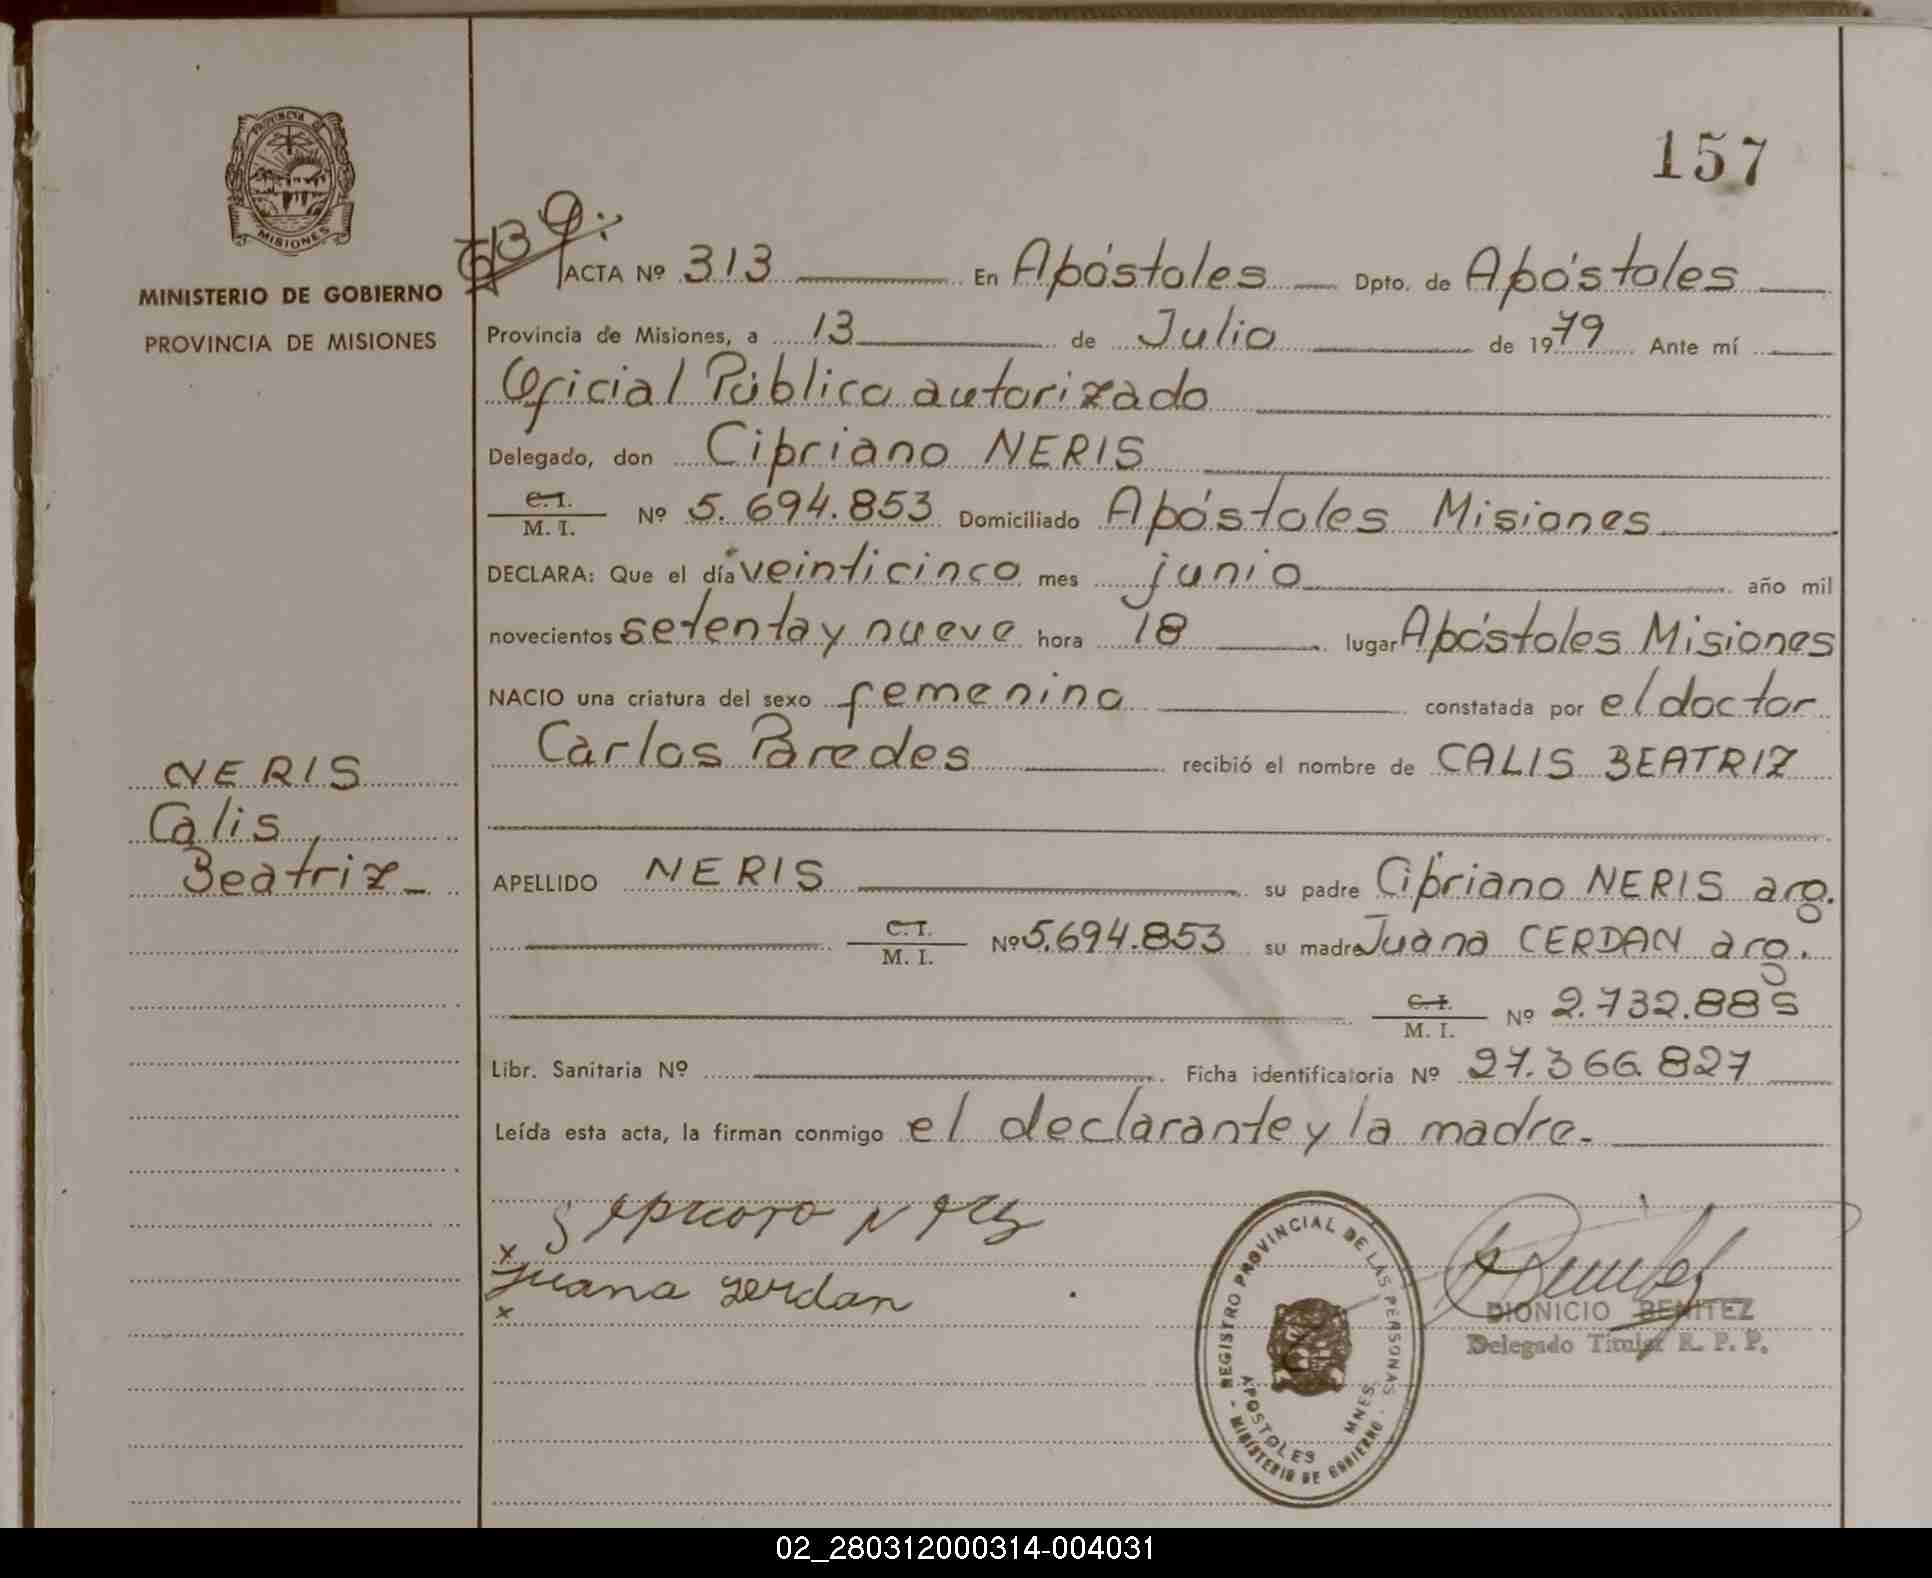 157
PROVINCIA DE
MISIONES
MINISTERIO DE GOBIERNO
PROVINCIA DE MISIONES
NERIS
Calis
Beatriz
ACTA Nº 313 En Apóstoles Dpto. de Apóstoles
Provincia de Misiones, a 13 de Julio de 1979 Ante mí
Oficial Público autorizado
Delegado, don Cipriano NERIS
C. I.
M. I. Nº 5.694.853 Domiciliado Apóstoles Misiones
DECLARA: Que el día veinticinco mes junio año mil
novecientos setenta y nueve hora 18 lugar Apóstoles Misiones
NACIO una criatura del sexo femenino constatada por el doctor
Carlos Paredes recibió el nombre de CALIS BEATRIZ
APELLIDO NERIS su padre Cipriano NERIS arg.
C. I.
M. I. Nº 5.694.853 su madre Juana CERDAN arg.
C. I.
M. I. Nº 2.732.885
Libr. Sanitaria Nº Ficha identificatoria Nº 27.366.827
Leída esta acta, la firman conmigo el declarante y la madre.
x
Juana Zerdan
x
REGISTRO PROVINCIAL DE LAS PERSONAS
APOSTOLES MNES.
- MINISTERIO DE GOBIERNO -
DIONICIO BENITEZ
Delegado Titular R. P. P.
02_280312000314-004031